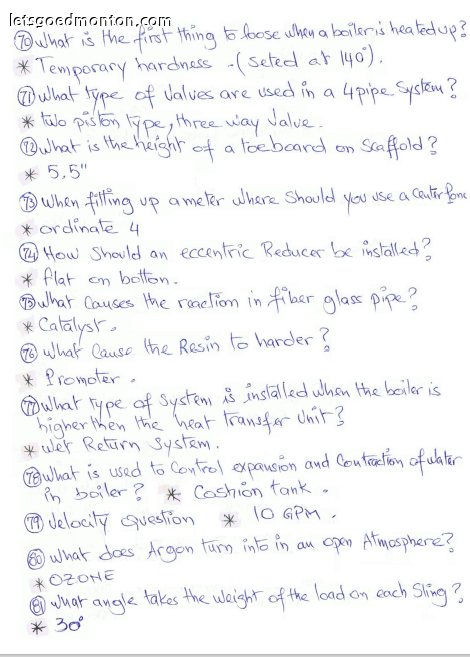 letsgoedmonton.com
70 What is the first thing to loose when a boiler is heated up?
* Temporary hardness - (Seted at 140°).
71 What type of Valves are used in a 4 pipe System?
* two piston type, three way Valve.
72 What is the height of a toeboard on Scaffold?
* 5,5"
73 When fitting up a meter where Should you use a Center
* ordinate 4
74 How Should an eccentric Reducer be installed?
* flat on botton.
75 What Causes the reaction in fiber glass pipe?
* Catalyst.
76 What Cause the Resin to harder?
* Promoter.
77 What type of System is installed when the boiler is
higher then the heat transfer Unit?
* Wet Return System.
78 What is used to Control expansion and Contraction of water
in boiler? * Coshion tank.
79 Velocity Question * 10 GPM.
80 What does Argon turn into in an open Atmosphere?
* OZONE
81 What angle takes the weight of the load on each Sling?
* 30°